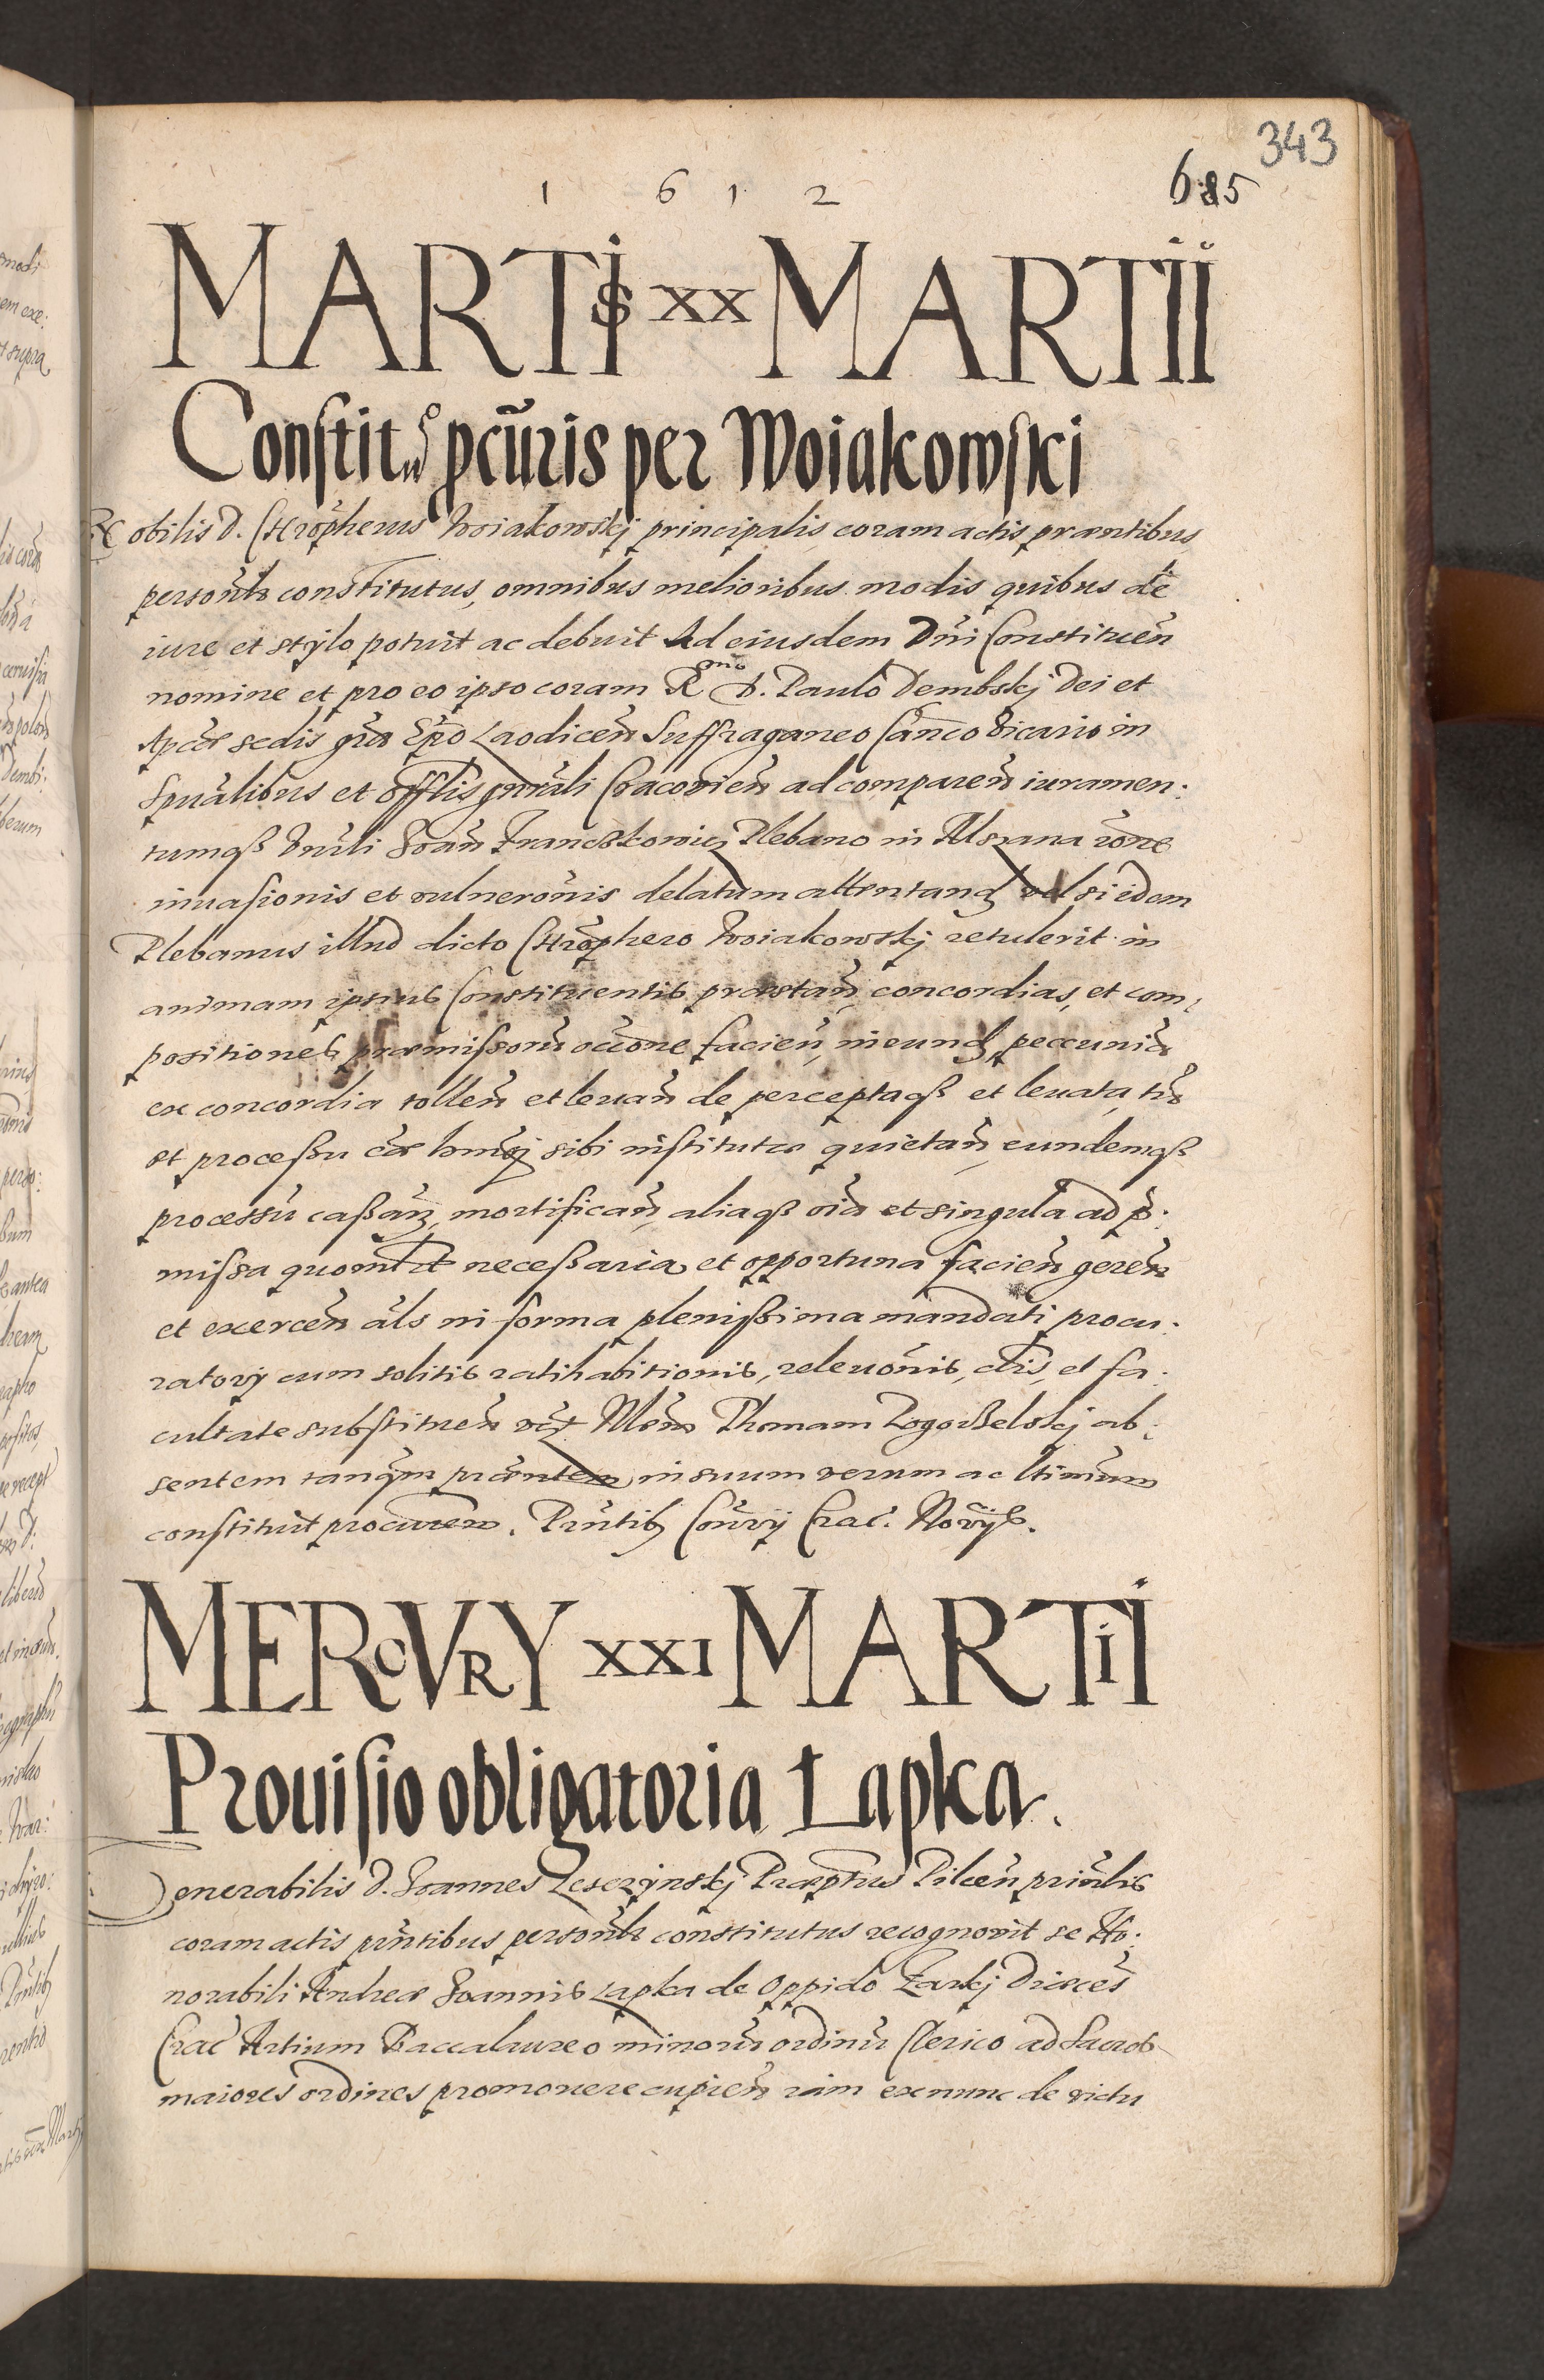 343
1 6 1 2
685
MARTIS XX MARTII
Constituõ pcũris per Woiakowski
Nobilis d. Chrõpherus Woiakowskj principalis coram actis præntibus
personlr constitutus, omnibus melioribus modis quibus de
iure et stylo potuit ac debuit Ad eiusdem Dñi Constituẽn
nomine et pro eo ipso coram Rmo D. Paulo Dembskj Dei et
Apcæ sedis grã Epõ Laodiceñ Suffraganeo Canco vicario in
Spualibus et Offlis gnrali Cracovieñ ad compareñ iuramen:
tumqß Dnuli Joañ Franciskowicz Plebano in Mszana rõne
invasionis et vulnerõnis delatum attentandũ vel si idem
Plebanus illud dicto Chrõphero Woiakowskj retulerit in
animam ipsius Constituentis præstañ, concordias, et com,
positiones præmissorũ occõne facieñ, ineund, peccunia
ex concordia tolleñ et levañ de perceptaqß et levata,
et processu cæ hmoj sibi institutæ quietañ, eundemqß
processũ caßañ, mortificañ, aliaqß oĩa et singula ad p̃:
missa quomlt necessaria et opportuna facieñ gereñ
et exerceñ als in forma plenissima mandati procu:
ratorij cum solitis ratihabitionis, relevõnis, clis, et fa:
cultate substitueñ
Thomam Rogoßelskj ab:
sentem tanq̃m præntem in suum verum ac ltimum
constituit procurem. Prntib Convij Crac. Novijs.
MERCVRY XXI MARTII
Prouisio obligatoria Łapka.
Venerabilis d. Joannes Leszczynskj Præptus Pilceñ prinlis
coram actis prntibus personlr constitutus recognovit se Ho:
norabili Andreæ Joannis Łapka de Oppido Żarkj Diæces
Crac Artium Baccalaureo minorũ ordinũ Clerico ad Sacros
maiores ordines promovere cupieñ iam ex nunc de victu